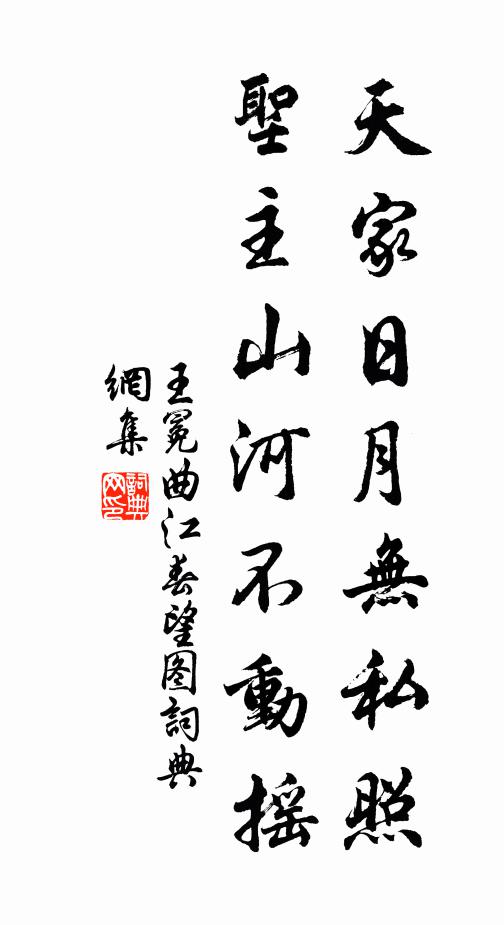 天家日月無私照
聖主山河不動摇
王冕曲江春望图詞典
網集
詞典
网印